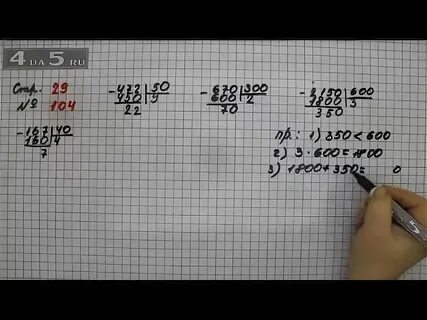 4 DA 5 .RU
Стр. 29
№ 104
- 472 | 50
450 | 9
22
- 670 | 300
600 | 2
70
- 2150 | 600
1800 | 3
350
- 167 | 40
160 | 4
7
пр.: 1) 350 < 600
2) 3 · 600 = 1800
3) 1800 + 350 = 0